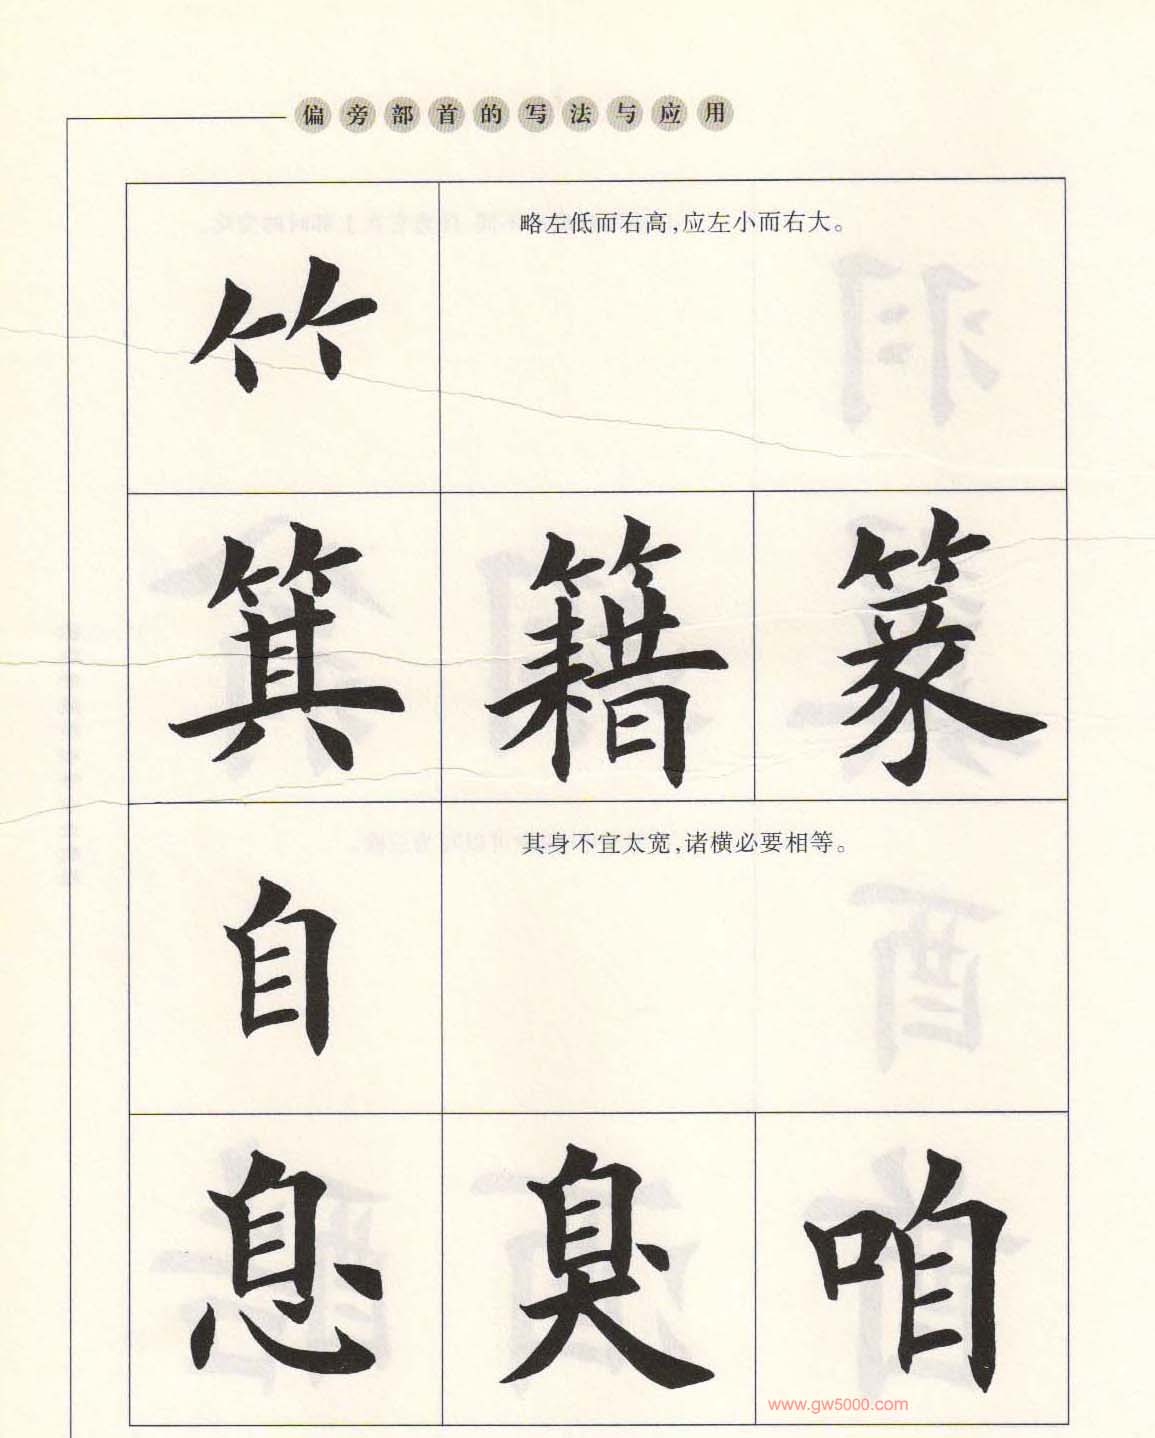 偏旁部首的写法与应用
竹
略左低而右高，应左小而右大。
箕 籍 篆
自
其身不宜太宽，诸横必要相等。
息 臭 咱
www.gw5000.com